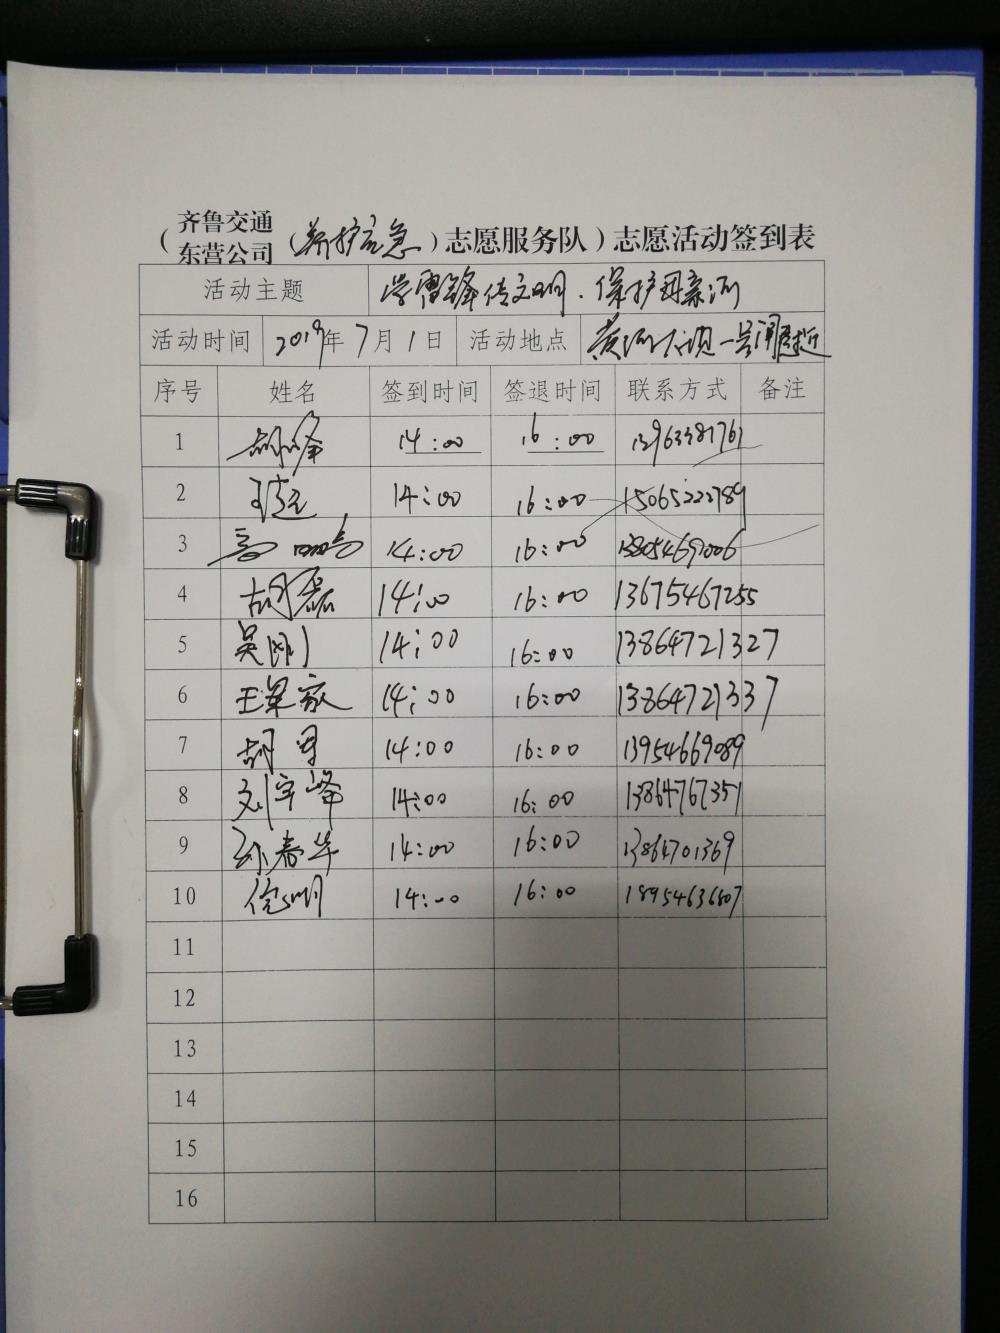 齐鲁交通
东营公司
（养护应急）志愿服务队）志愿活动签到表
活动主题 学雷锋传文明、保护母亲河
活动时间 2019年7月1日 活动地点 黄河大坝一号闸附近
序号 姓名 签到时间 签退时间 联系方式 备注
1 14:00 16:00 13963381761
2 14:00 16:00 15065222789
3 14:00 16:00 13805469006
4 胡磊 14:00 16:00 13675467255
5 吴刚 14:00 16:00 13864721327
6 王军家 14:00 16:00 13864721337
7 14:00 16:00 13954669089
8 刘宇峰 14:00 16:00 13864767351
9 孙春华 14:00 16:00 13864701369
10 14:00 16:00 18954636807
11
12
13
14
15
16